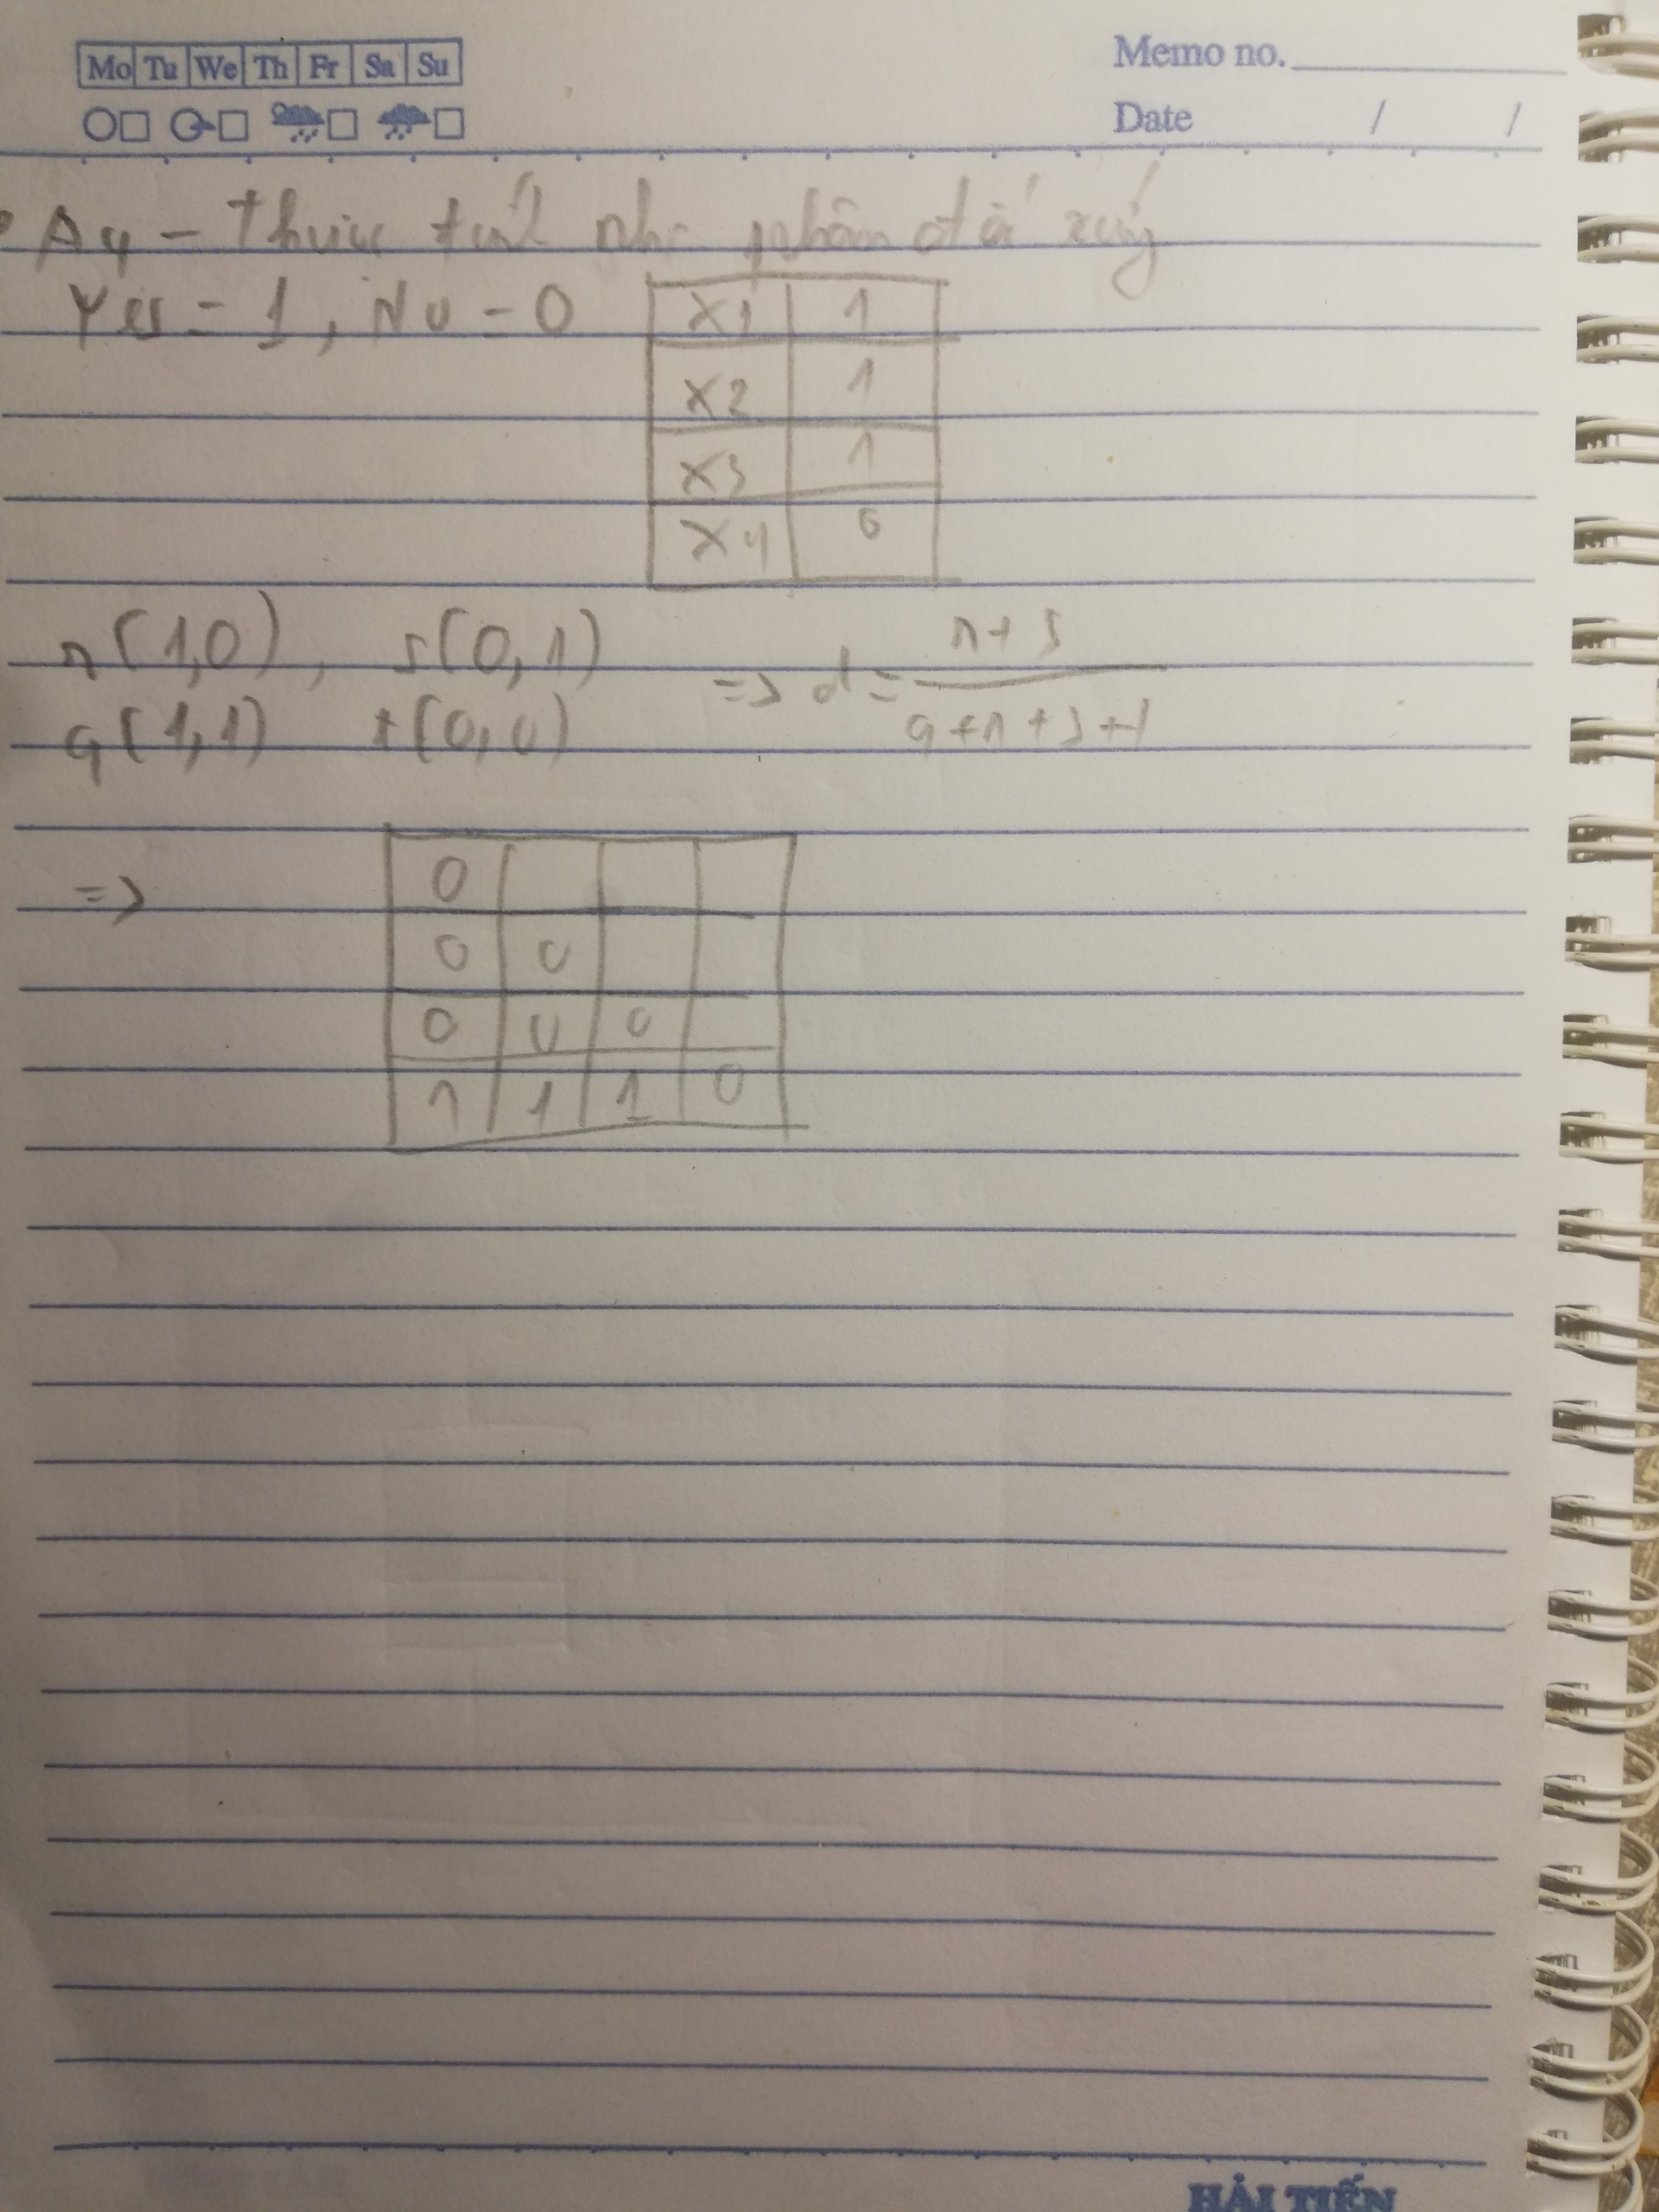 Mo Tu We Th Fr Sa Su
Memo no.
Date / /
A4 - Thuộc tính nhị phân đối xứng
Yes = 1, No = 0
X1 1
X2 1
X3 1
X4 0
r(1,0), s(0,1)
q(1,1) t(0,0)
=> d = r+s / q+r+s+t
=>
0
0 0
0 0 0
1 1 1 0
HẢI TIẾN